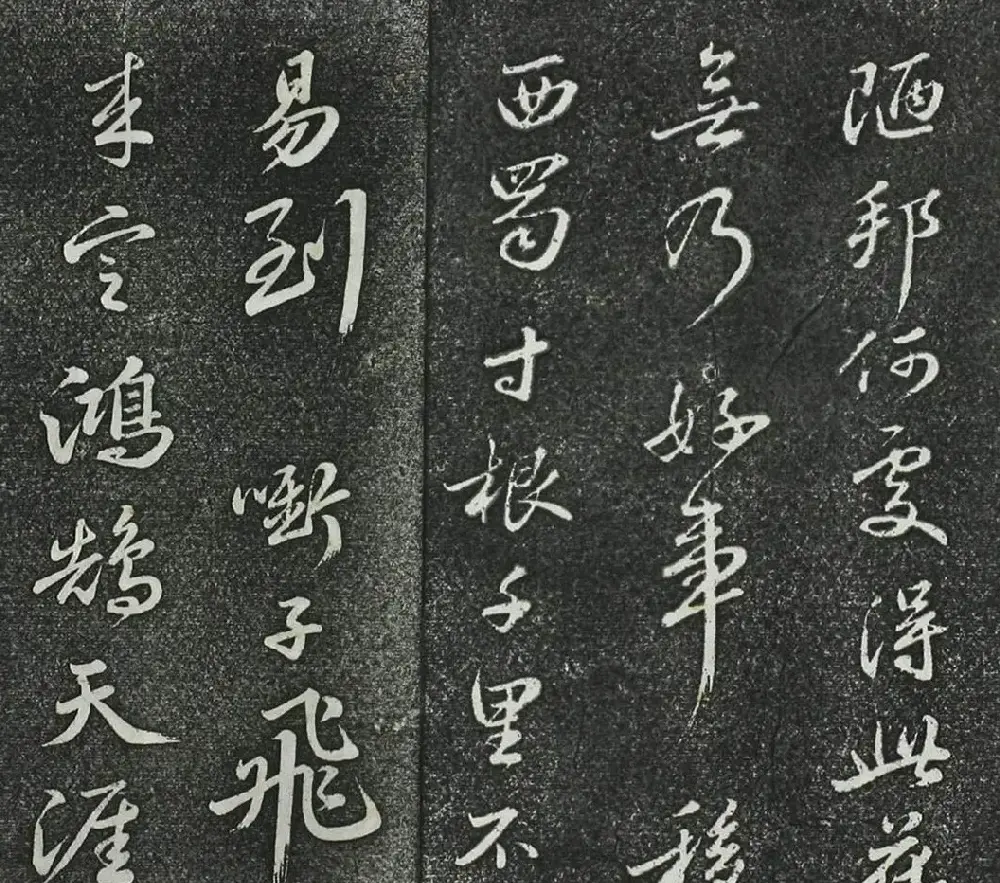 陋邦何處得此花
無乃好事移
西蜀寸根千里不
易到銜子飛
來定鴻鵠天涯